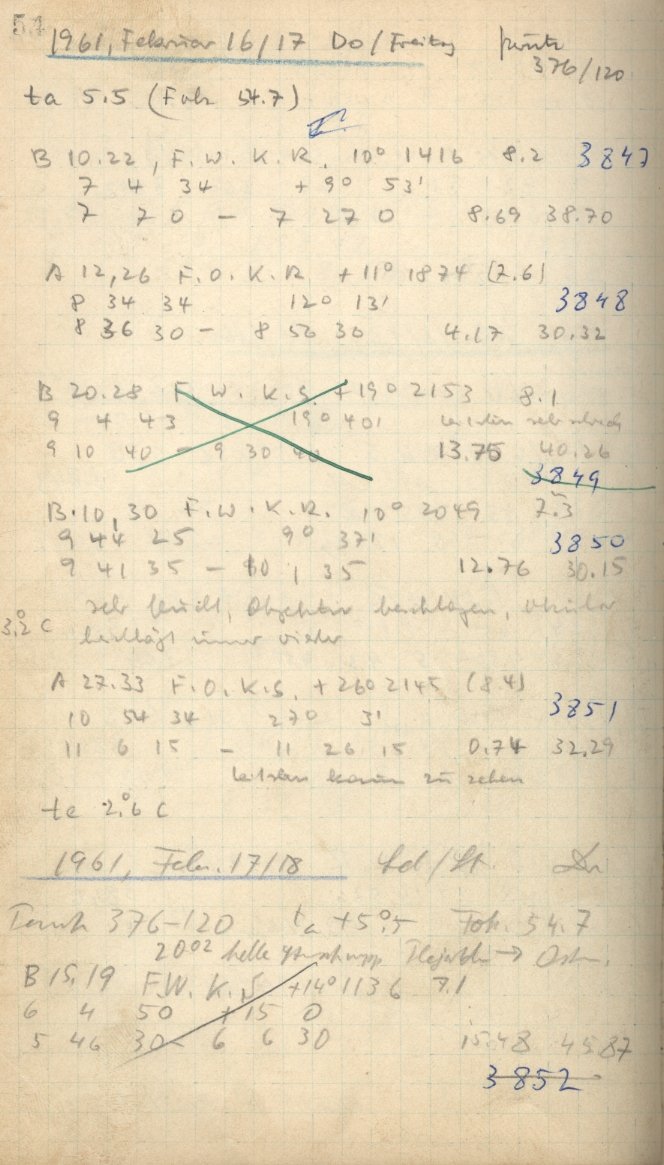 51
1961, Februar 16/17 Do/Freitag
376/120
ta 5.5 (Fok 54.7)
B 10.22, F. W. K. R. 10° 1416 8.2 3847
7 4 34 + 9° 53'
7 7 0 - 7 27 0 8.69 38.70
A 12,26 F. O. K. R. + 11° 1874 (7.6)
8 34 34 12° 13' 3848
8 36 30 - 8 56 30 4.17 30.32
B 20.28 F. W. K. S. + 19° 2153 8.1
9 4 43 19° 40' Leitstern sehr schwach
9 10 40 - 9 30 40 13.75 40.26
3849
B. 10, 30 F. W. K. R. 10° 2049 7.3
9 44 25 9° 37' 3850
9 41 35 - 10 1 35 12.76 30.15
sehr feucht, Objektiv beschlagen, Okular
3°.2 C beschlägt immer wieder
A 27.33 F. O. K. S. + 26° 2145 (8.4)
10 54 34 27° 3' 3851
11 6 15 - 11 26 15 0.74 32.29
Leitstern kaum zu sehen
te 2°.6 C
1961, Febr. 17/18
376-120 ta +5°.5 Fok. 54.7
20 02 helle
B 15.19 F. W. K. S. +14° 1136 7.1
6 4 50 +15 0
5 46 30 - 6 6 30 15.48 45.87
3852